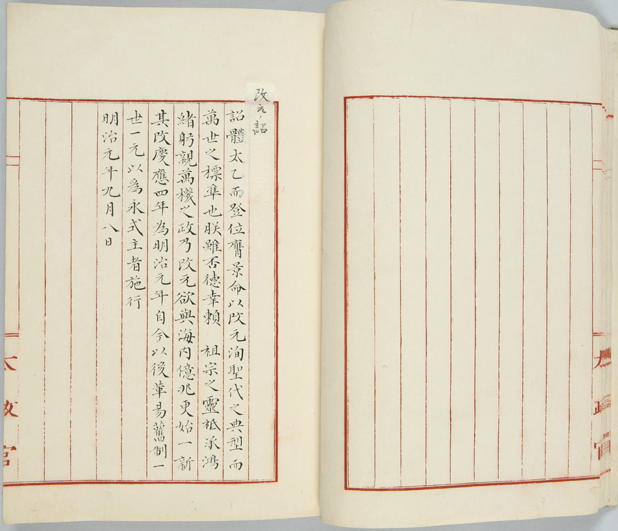 改元ノ詔
詔體太乙而登位膺景命以改元洵聖代之典型而
萬世之標準也朕雖否德幸賴　祖宗之靈祗承鴻
緒躬親萬機之政乃改元欲與海內億兆更始一新
其改慶應四年為明治元年自今以後革易舊制一
世一元以為永式主者施行
明治元年九月八日
太政官
太政官